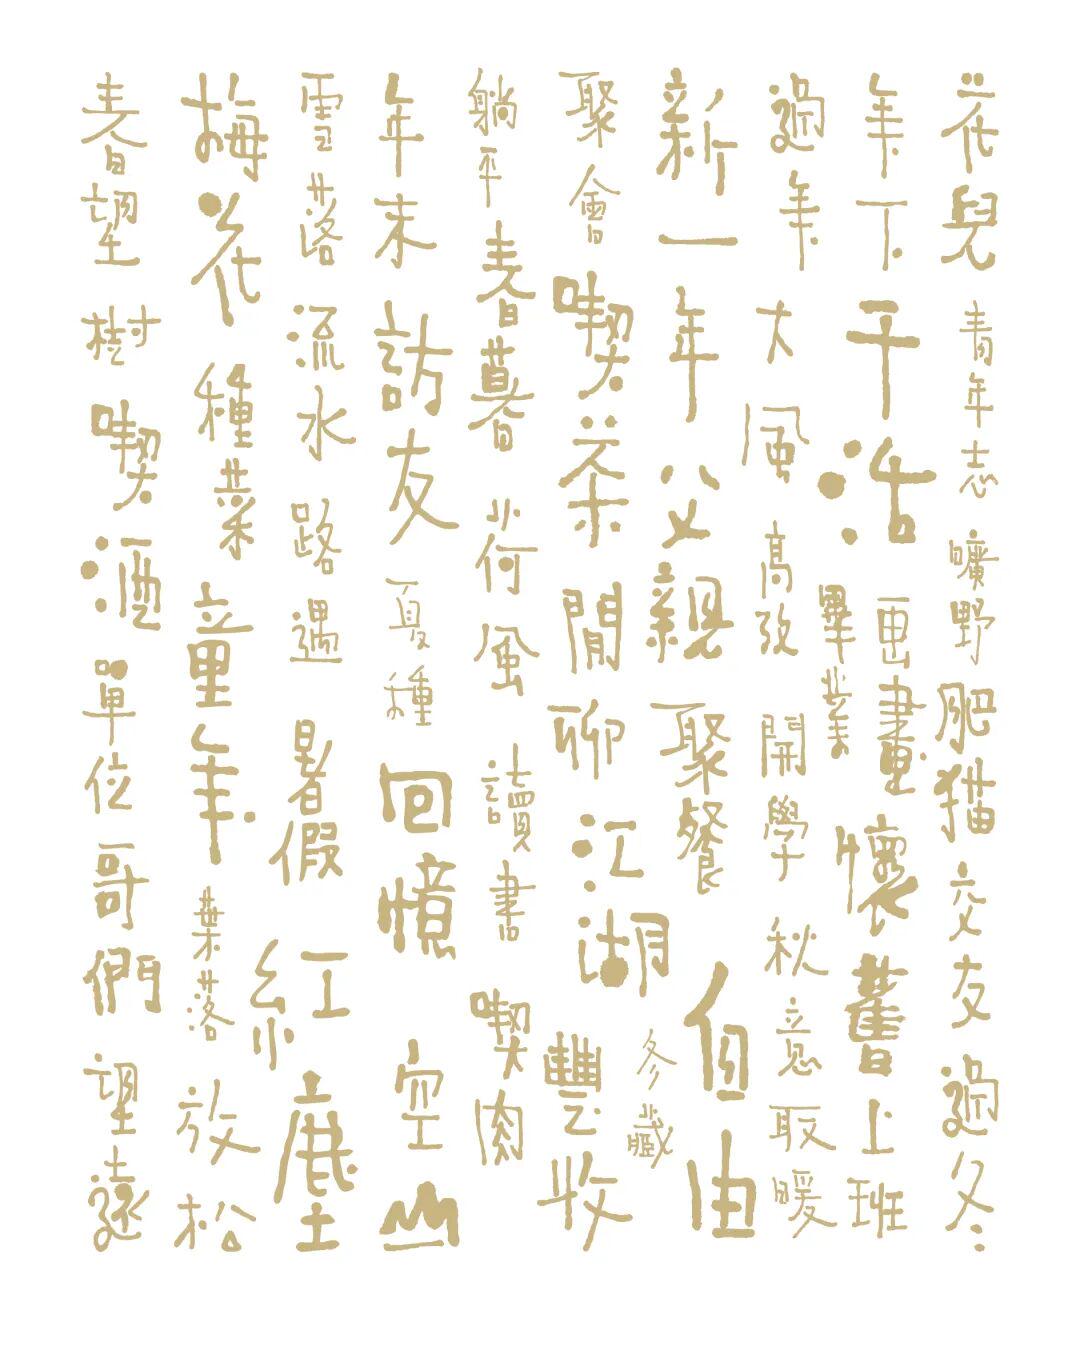 花兒 青年志 曠野 肥猫 交友 過冬
年下 干活 画畫 懷舊 上班
過年 大風 高攷 畢業 開學 秋意 取暖
新一年 父親 聚餐 自由
聚會 喫茶 閒聊 江湖 豐收 冬藏
躺平 春暮 荷風 讀書 喫肉
年末 訪友 夏種 回憶 空山
雪落 流水 路遇 暑假 紅塵
梅花 種菜 童年 葉落 放松
春望 樹 喫酒 單位 哥們 望遠